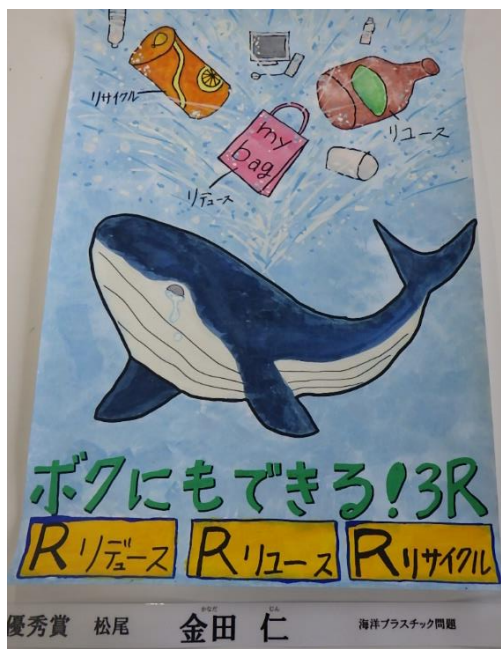 リサイクル
リユース
my
bag
リデュース
ボクにもできる!3R
Rリデュース Rリユース Rリサイクル
かなだ じん
優秀賞 松尾 金田 仁 海洋プラスチック問題